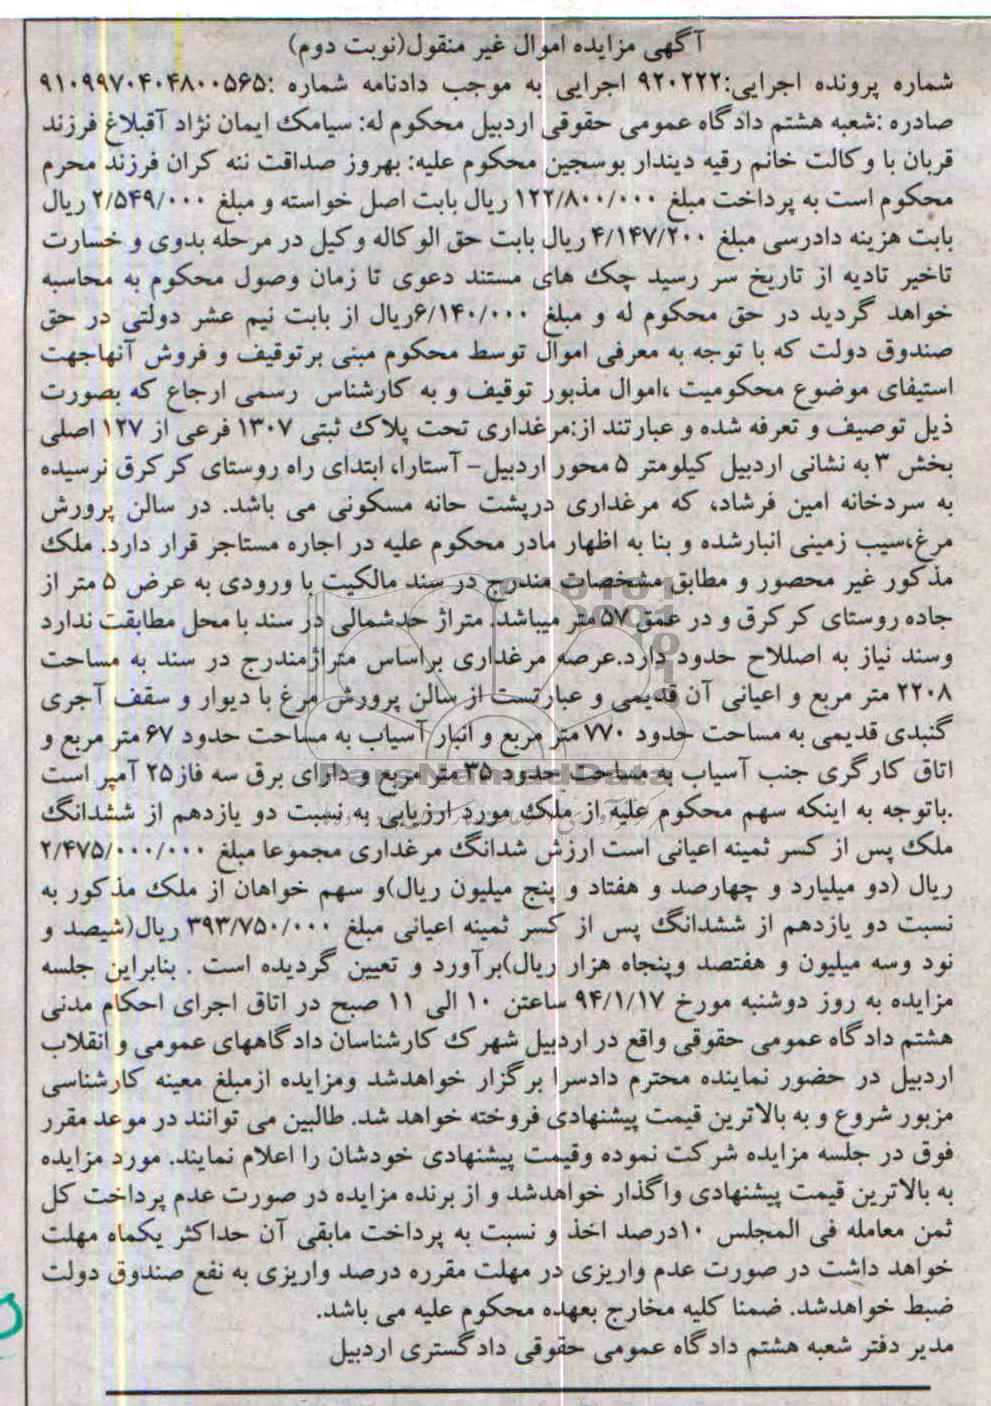 آگهی مزایده اموال غیر منقول(نوبت دوم)
شماره پرونده اجرایی:۹۲۰۲۲۲ اجرایی به موجب دادنامه شماره :۹۱۰۹۹۷۰۴۰۴۸۰۰۵۶۵
صادره :شعبه هشتم دادگاه عمومی حقوقی اردبیل محکوم له: سیامک ایمان نژاد آقبلاغ فرزند
قربان با وکالت خانم رقیه دیندار بوسجین محکوم علیه: بهروز صداقت ننه کران فرزند محرم
محکوم است به پرداخت مبلغ ۱۲۲/۸۰۰/۰۰۰ ریال بابت اصل خواسته و مبلغ ۲/۵۴۹/۰۰۰ ریال
بابت هزینه دادرسی مبلغ ۴/۱۴۷/۲۰۰ ریال بابت حق الوکاله وکیل در مرحله بدوی و خسارت
تاخیر تادیه از تاریخ سر رسید چک های مستند دعوی تا زمان وصول محکوم به محاسبه
خواهد گردید در حق محکوم له و مبلغ ۶/۱۴۰/۰۰۰ریال از بابت نیم عشر دولتی در حق
صندوق دولت که با توجه به معرفی اموال توسط محکوم مبنی برتوقیف و فروش آنهاجهت
استیفای موضوع محکومیت ،اموال مذبور توقیف و به کارشناس رسمی ارجاع که بصورت
ذیل توصیف و تعرفه شده و عبارتند از:مرغداری تحت پلاک ثبتی ۱۳۰۷ فرعی از ۱۲۷ اصلی
بخش ۳ به نشانی اردبیل کیلومتر ۵ محور اردبیل- آستارا، ابتدای راه روستای کرکرق نرسیده
به سردخانه امین فرشاد، که مرغداری درپشت حانه مسکونی می باشد. در سالن پرورش
مرغ،سیب زمینی انبارشده و بنا به اظهار مادر محکوم علیه در اجاره مستاجر قرار دارد. ملک
مذکور غیر محصور و مطابق مشخصات مندرج در سند مالکیت با ورودی به عرض ۵ متر از
جاده روستای کرکرق و در عمق ۵۷ متر میباشد. متراژ حدشمالی در سند با محل مطابقت ندارد
وسند نیاز به اصللاح حدود دارد.عرصه مرغداری براساس متراژمندرج در سند به مساحت
۲۲۰۸ متر مربع و اعیانی آن قدیمی و عبارتست از سالن پرورش مرغ با دیوار و سقف آجری
گنبدی قدیمی به مساحت حدود ۷۷۰ متر مربع و انبار آسیاب به مساحت حدود ۶۷ متر مربع و
اتاق کارگری جنب آسیاب به مساحت حدود ۳۵ متر مربع و دارای برق سه فاز۲۵ آمپر است
.باتوجه به اینکه سهم محکوم علیه از ملک مورد ارزیابی به نسبت دو یازدهم از ششدانگ
ملک پس از کسر ثمینه اعیانی است ارزش شدانگ مرغداری مجموعا مبلغ ۲/۴۷۵/۰۰۰/۰۰۰
ریال (دو میلیارد و چهارصد و هفتاد و پنج میلیون ریال)و سهم خواهان از ملک مذکور به
نسبت دو یازدهم از ششدانگ پس از کسر ثمینه اعیانی مبلغ ۳۹۳/۷۵۰/۰۰۰ ریال(شیصد و
نود وسه میلیون و هفتصد وپنجاه هزار ریال)برآورد و تعیین گردیده است . بنابراین جلسه
مزایده به روز دوشنبه مورخ ۹۴/۱/۱۷ ساعتن ۱۰ الی ۱۱ صبح در اتاق اجرای احکام مدنی
هشتم دادگاه عمومی حقوقی واقع در اردبیل شهرک کارشناسان دادگاههای عمومی و انقلاب
اردبیل در حضور نماینده محترم دادسرا برگزار خواهدشد ومزایده ازمبلغ معینه کارشناسی
مزبور شروع و به بالاترین قیمت پیشنهادی فروخته خواهد شد. طالبین می توانند در موعد مقرر
فوق در جلسه مزایده شرکت نموده وقیمت پیشنهادی خودشان را اعلام نمایند. مورد مزایده
به بالاترین قیمت پیشنهادی واگذار خواهدشد و از برنده مزایده در صورت عدم پرداخت کل
ثمن معامله فی المجلس ۱۰درصد اخذ و نسبت به پرداخت مابقی آن حداکثر یکماه مهلت
خواهد داشت در صورت عدم واریزی در مهلت مقرره درصد واریزی به نفع صندوق دولت
ضبط خواهدشد. ضمنا کلیه مخارج بعهده محکوم علیه می باشد.
مدیر دفتر شعبه هشتم دادگاه عمومی حقوقی دادگستری اردبیل
ParsNamadData